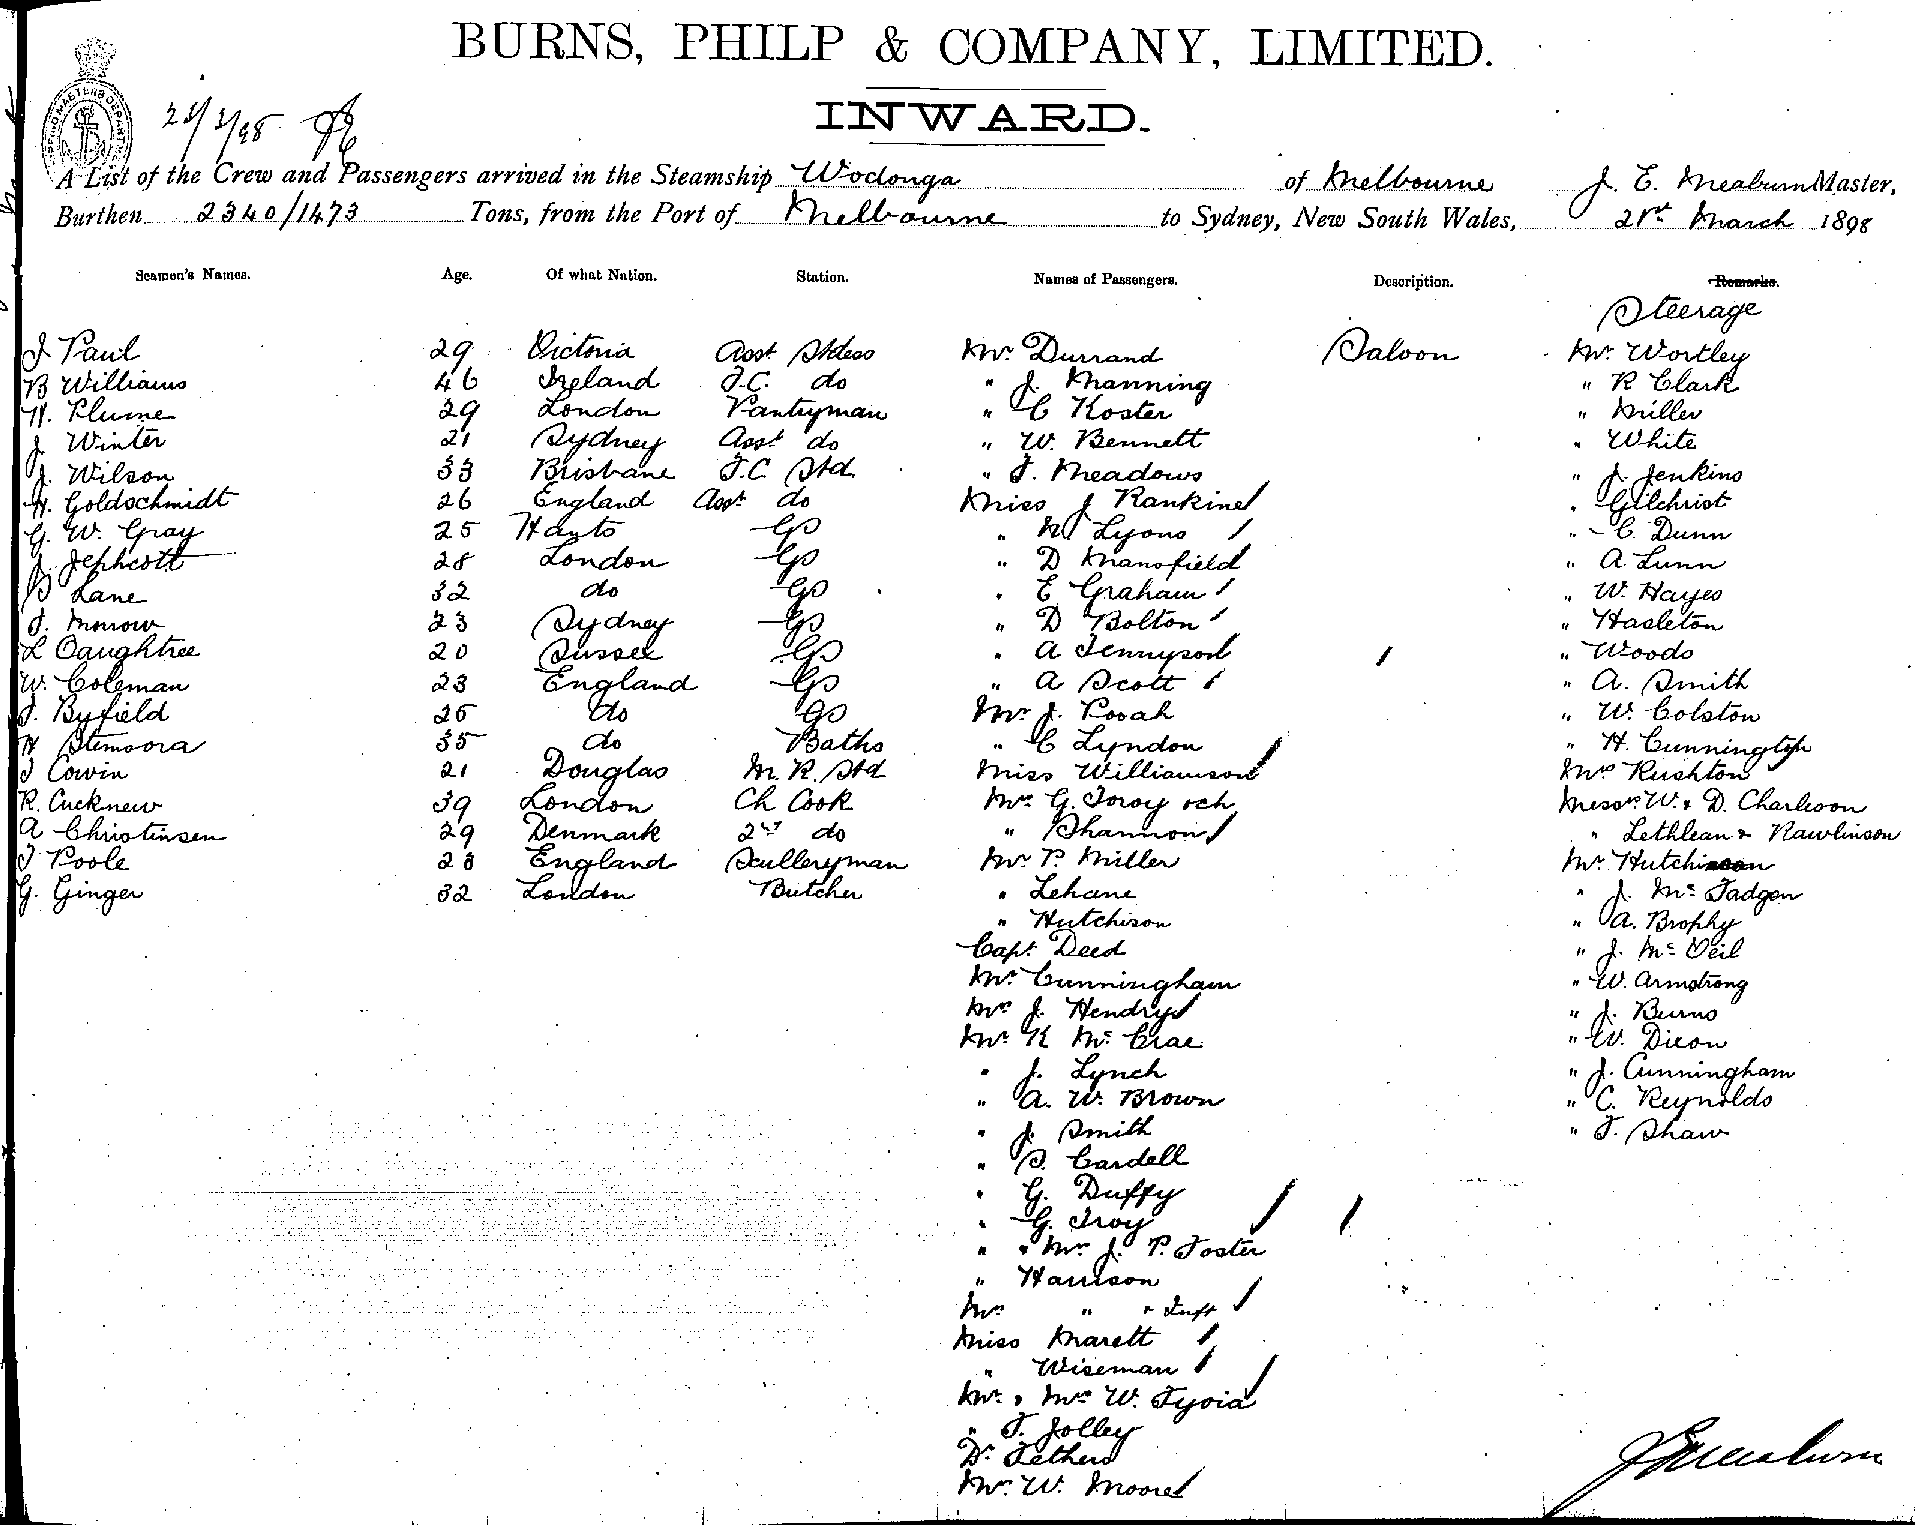 BURNS, PHILP & COMPANY, LIMITED.
INWARD.
A List of the Crew and Passengers arrived in the Steamship Wodonga of Melbourne J. E. Meaburn Master,
Burthen 2340/1473 Tons, from the Port of Melbourne to Sydney, New South Wales, 21st March 1898
Seamen's Names. Age. Of what Nation. Station. Names of Passengers. Description. Remarks.
Steerage
J Paul 29 Victoria Asst Stdess Mr. Durrand Saloon Mr Wortley
B Williams 46 Ireland F.C. do " J. Manning " R Clark
H. Plume 29 London Pantryman " C Koster " Miller
J Winter 21 Sydney Asst do " W. Bennett " White
J. Wilson 33 Brisbane F.C Std. " F. Meadows " J. Jenkins
H. Goldschmidt 26 England Asst do Miss J Rankine " Gilchrist
G. W. Gray 25 Hants GS " N Lyons " C. Dunn
J. Jephcott 28 London GS " D Mansfield " A. Lunn
S Lane 32 do GS " E Graham " W. Hayes
J. Morrow 23 Sydney GS " D Bolton " Hasleton
L Daughtree 20 Sussex GS " A Tennyson " Woods
W. Coleman 23 England GS " A Scott " A. Smith
J. Byfield 25 do GS Mr. J. Posah " W. Colston
H 35 do Baths " C Lyndon " H. Cunnington
J Cowin 21 Douglas M. R. Std Miss Williamson Mrs Rushton
R. Cucknew 39 London Ch Cook Mrs G. och Messrs W. & D. Charleson
A Christinsen 29 Denmark 2nd do " Shannon " Lethlean & Rawlinson
J Poole 28 England Sculleryman Mr P. Miller Mr Hutchison
G. Ginger 32 London Butcher " Lehane " J. Mc Fadgen
" Hutchison " A. Brophy
Capt. Deed " J. Mc Veil
Mr. Cunningham " W. Armstrong
Mrs J. Hendry " J. Burns
Mr. K Mc Crae " W. Dixon
" J. Lynch " J. Cunningham
" A. W. Brown " C. Reynolds
" J. Smith " F. Shaw
" S. Cardell
" G. Duffy
" G. Troy
" " Mrs J. P. Foster
" Harrison
Mrs " " Inft
Miss Marett
" Wiseman
Mr. & Mrs W.
" F. Jolley
Dr. Fethers
Mr. W. Moore